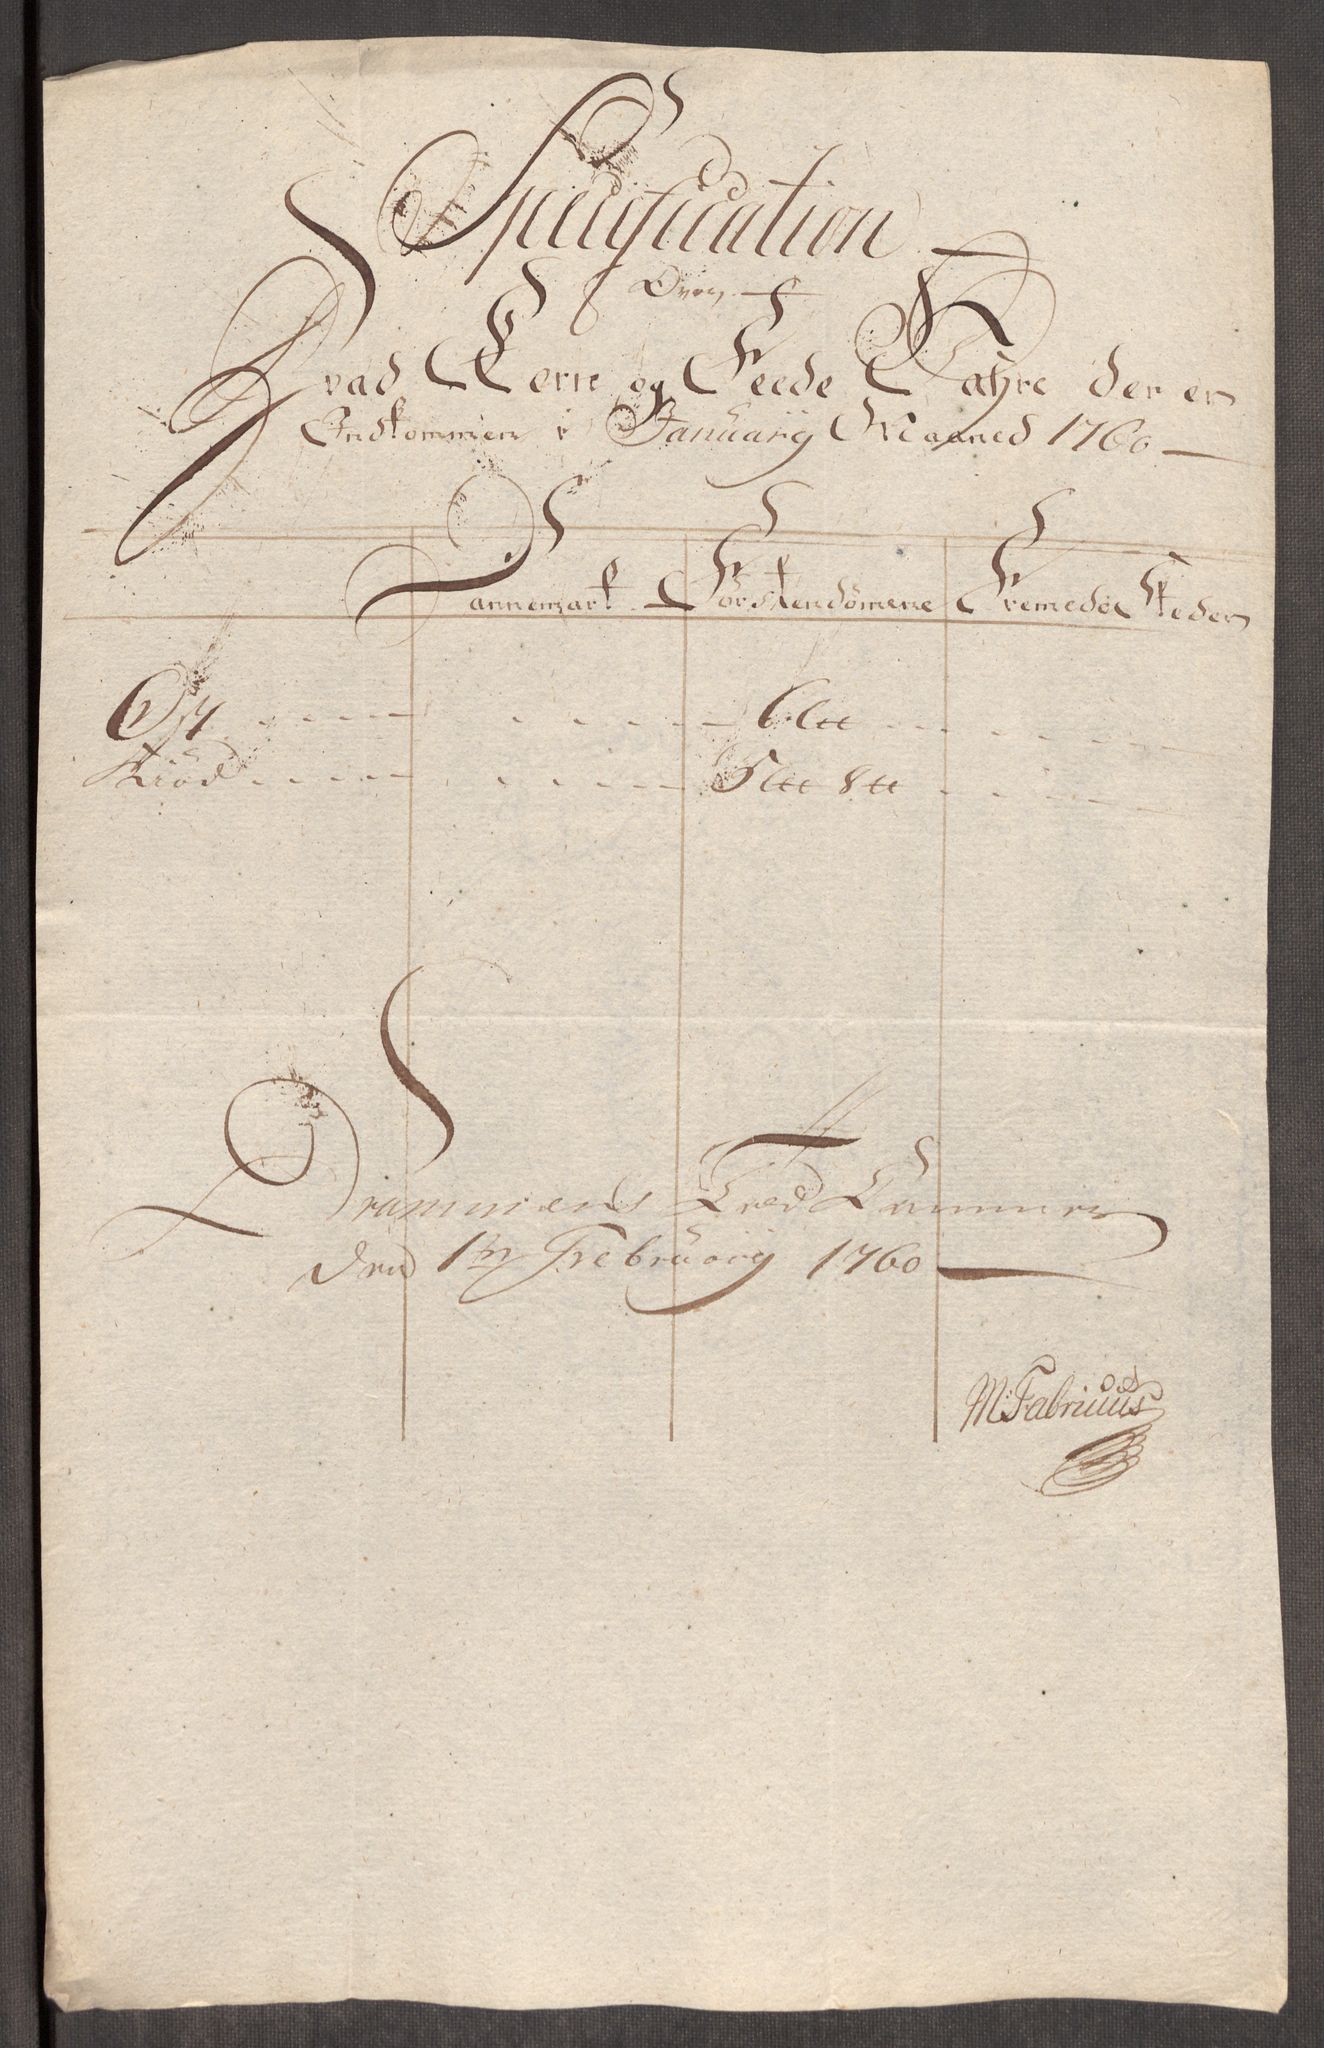 Specification
Over
Hvad Kerre og Feede Wahre der er
Indkommen i Januarij Maaned 1760
Dannemark Förstendömene Fremede Steder
Ost 6 L℔
Kiöd 5 L℔ 8 ℔
Drammens Toed Kammer
den 1n Februarij 1760
M: Fabricius